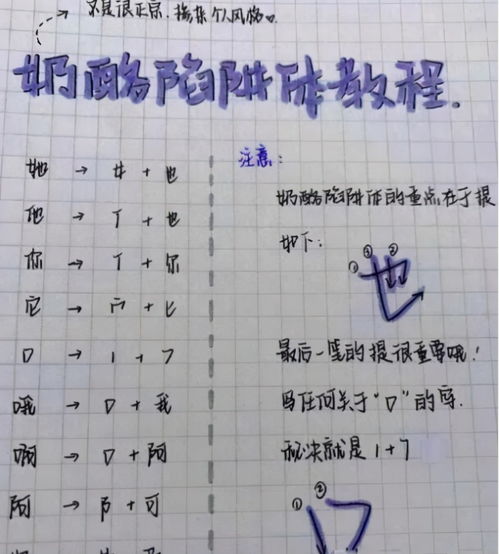 不是很正宗，掺杂个人风格。
奶酪陷阱体教程.
她 → 女 + 也
他 → 亻 + 也
你 → 亻 + 尔
它 → 宀 + 匕
口 → 1 + 7
哦 → 口 + 我
啊 → 口 + 阿
阿 → 阝 + 可
注意：
奶酪陷阱体的重点在于提
如下：
① ③ ②
也
最后一笔的提很重要哦！
写任何关于“口”的字.
秘诀就是 1 + 7
① ②
口